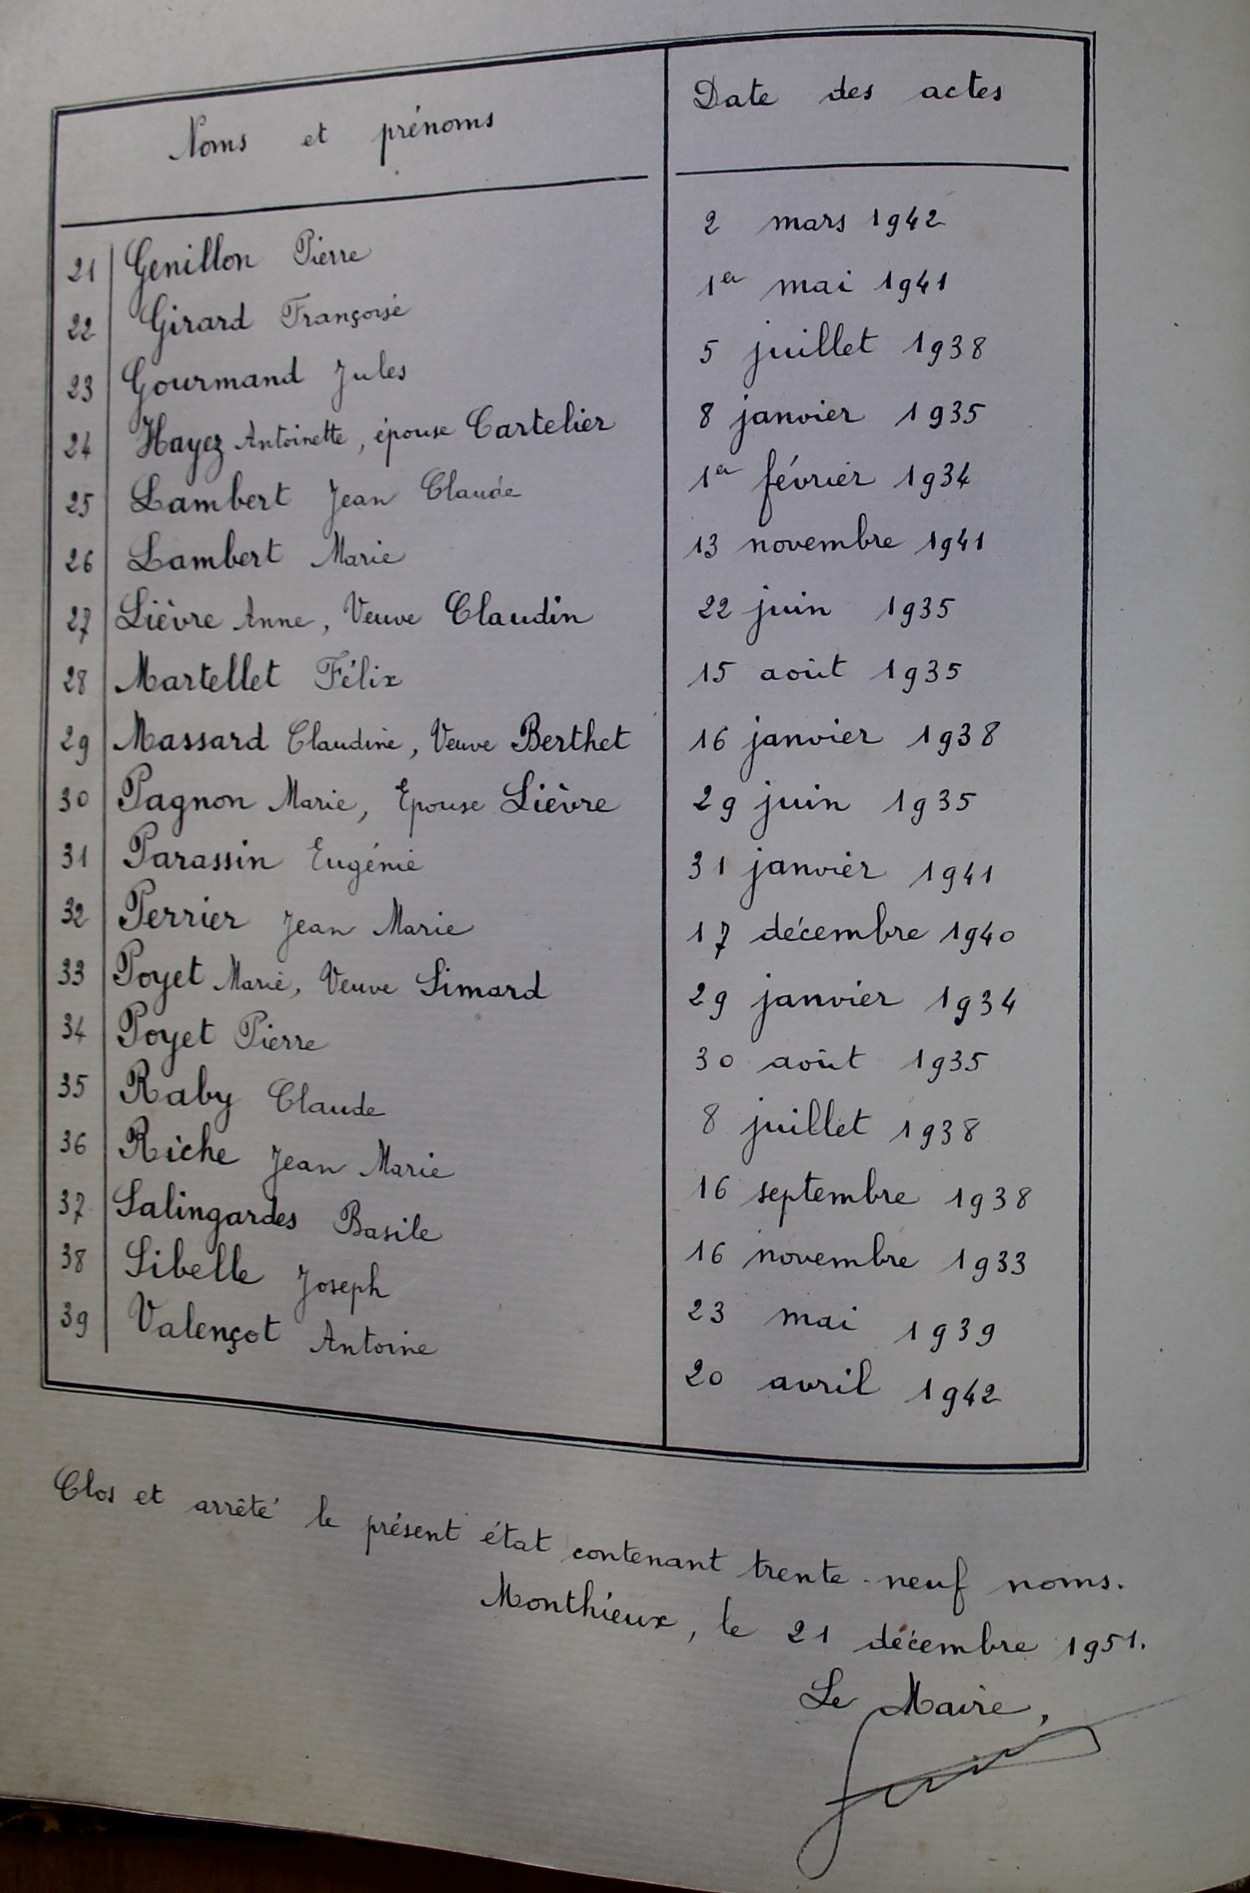 Noms et prénoms Date des actes
21 Genillon Pierre 2 mars 1942
22 Girard Françoise 1er mai 1941
23 Gourmand Jules 5 juillet 1938
24 Hayez Antoinette, épouse Cartelier 8 janvier 1935
25 Lambert Jean Claude 1er février 1934
26 Lambert Marie 13 novembre 1941
27 Lièvre Anne, Veuve Claudin 22 juin 1935
28 Martellet Félix 15 août 1935
29 Massard Claudine, Veuve Berthet 16 janvier 1938
30 Pagnon Marie, Epouse Lièvre 29 juin 1935
31 Parassin Eugénie 31 janvier 1941
32 Perrier Jean Marie 17 décembre 1940
33 Poyet Marie, Veuve Simard 29 janvier 1934
34 Poyet Pierre 30 août 1935
35 Raby Claude 8 juillet 1938
36 Riche Jean Marie 16 septembre 1938
37 Salingardes Basile 16 novembre 1933
38 Sibelle Joseph 23 mai 1939
39 Valençot Antoine 20 avril 1942
Clos et arrêté le présent état contenant trente-neuf noms.
Monthieux, le 21 décembre 1951.
Le Maire,